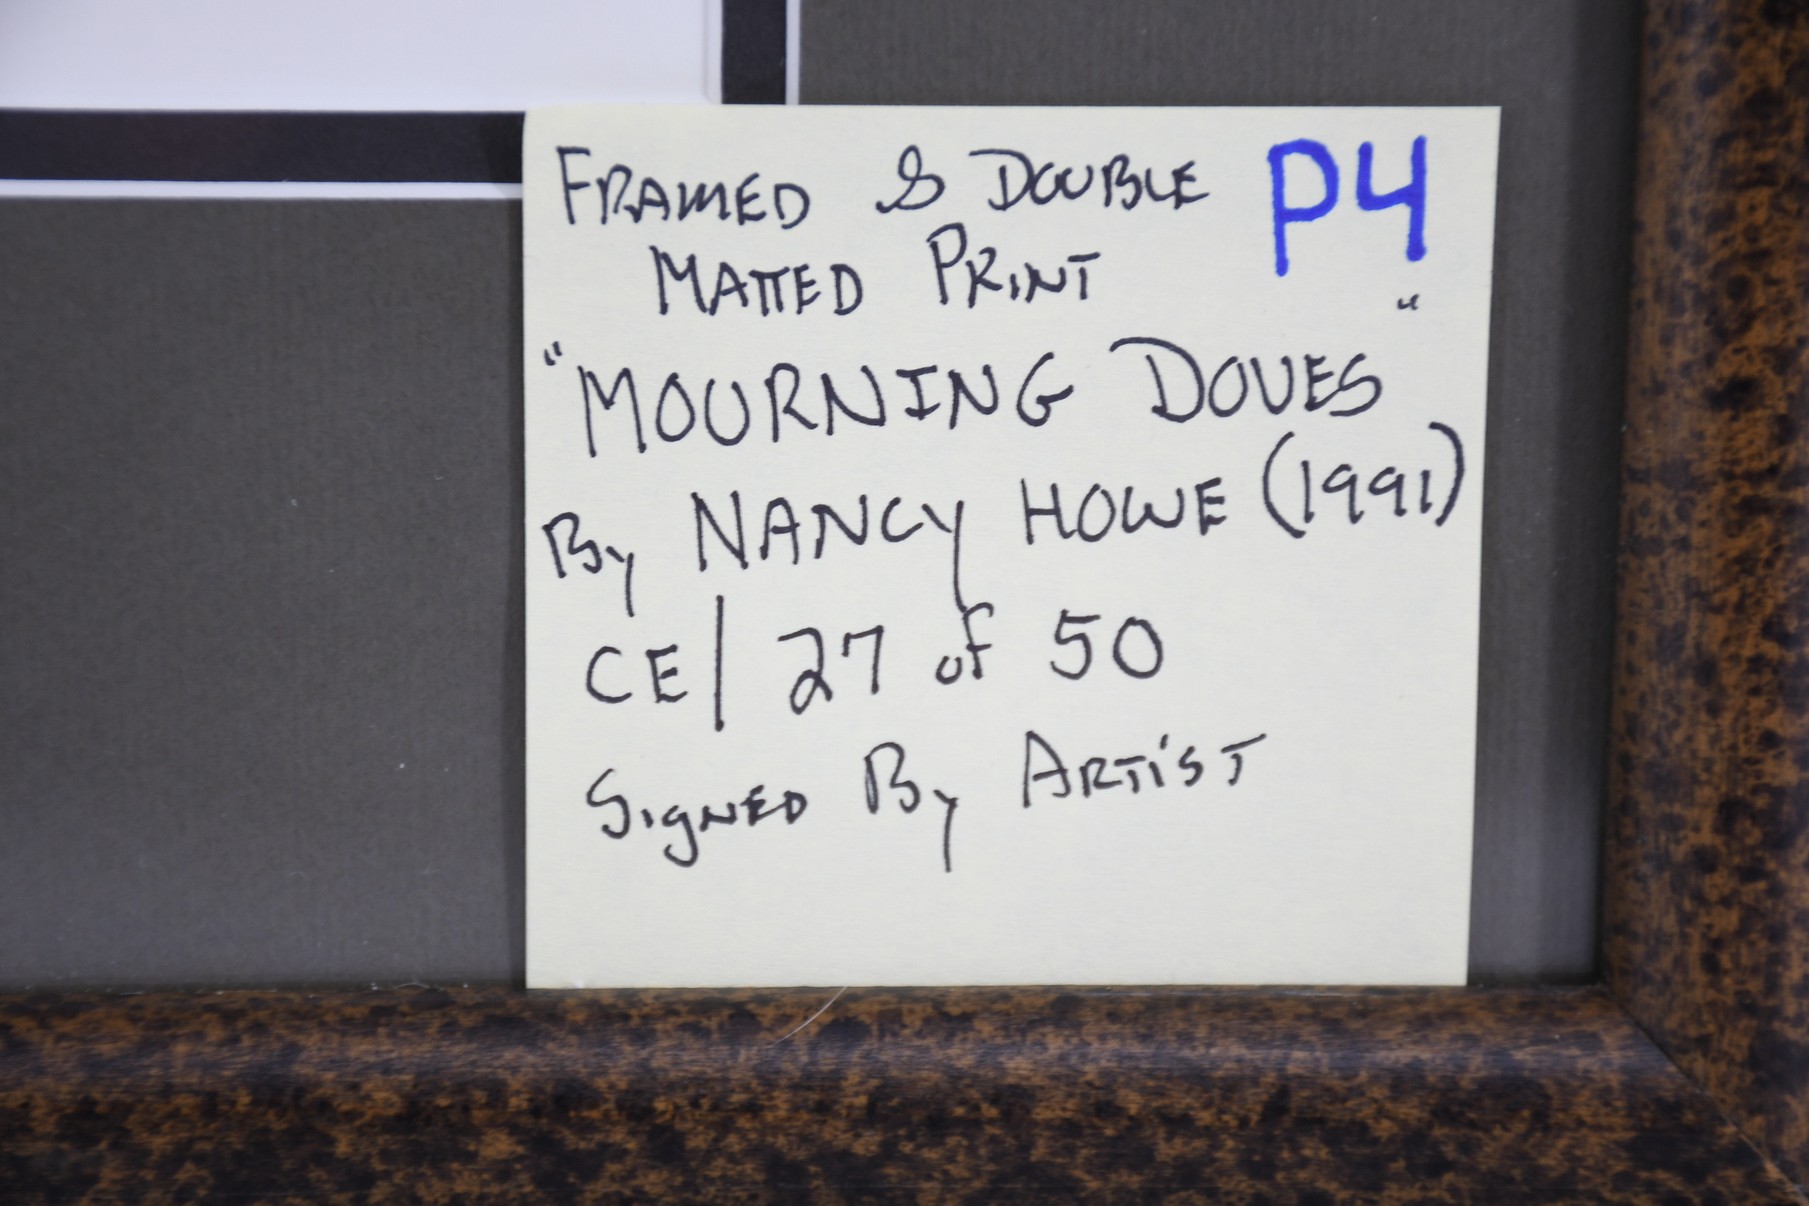 FRAMED & DOUBLE P4
MATTED PRINT
"MOURNING DOVES"
By NANCY HOWE (1991)
CE/ 27 of 50
SIGNED By ARTiST